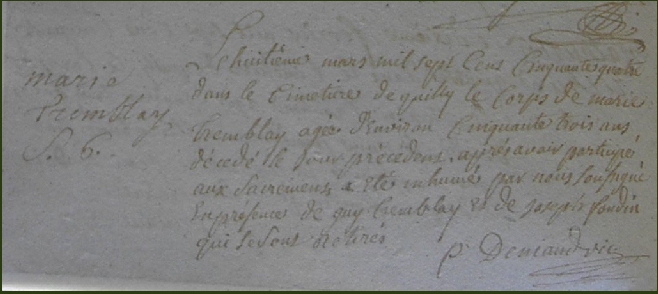 marie
Tremblay
S. 6.
Le huitième mars mil sept Cens Cinquante quatre
dans le Cimetiere de quilly le Corps de marie
tremblay agée d'environ Cinquante trois ans
décédé le jour précédent, apprés avoir participé
aux sacremens a eté inhumé par nous soussigné
En présence de guy tremblay et de joseph
qui se sont retirés